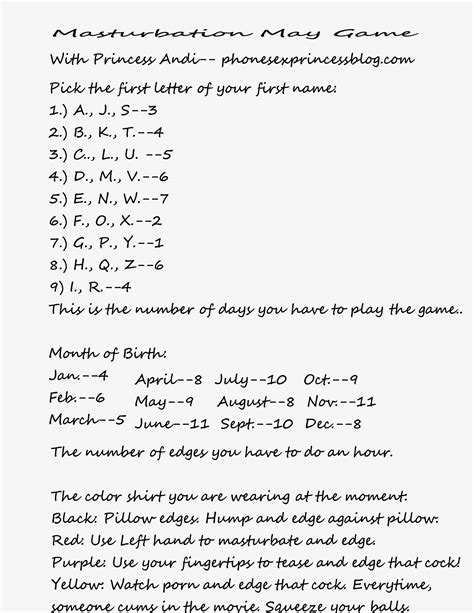 Masturbation May Game
With Princess Andi-- phonesexprincessblog.com
Pick the first letter of your first name:
1.) A., J., S--3
2.) B., K., T.--4
3.) C.., L., U. --5
4.) D., M., V.--6
5.) E., N., W.--7
6.) F., O., X.--2
7.) G., P., Y.--1
8.) H., Q., Z--6
9) I., R.--4
This is the number of days you have to play the game..
Month of Birth:
Jan.--4 April--8 July--10 Oct.--9
Feb.--6 May--9 August--8 Nov.--11
March--5 June--11 Sept.--10 Dec.--8
The number of edges you have to do an hour.
The color shirt you are wearing at the moment:
Black: Pillow edges. Hump and edge against pillow.
Red: Use Left hand to masturbate and edge.
Purple: Use your fingertips to tease and edge that cock!
Yellow: Watch porn and edge that cock. Everytime,
someone cums in the movie. Squeeze your balls.